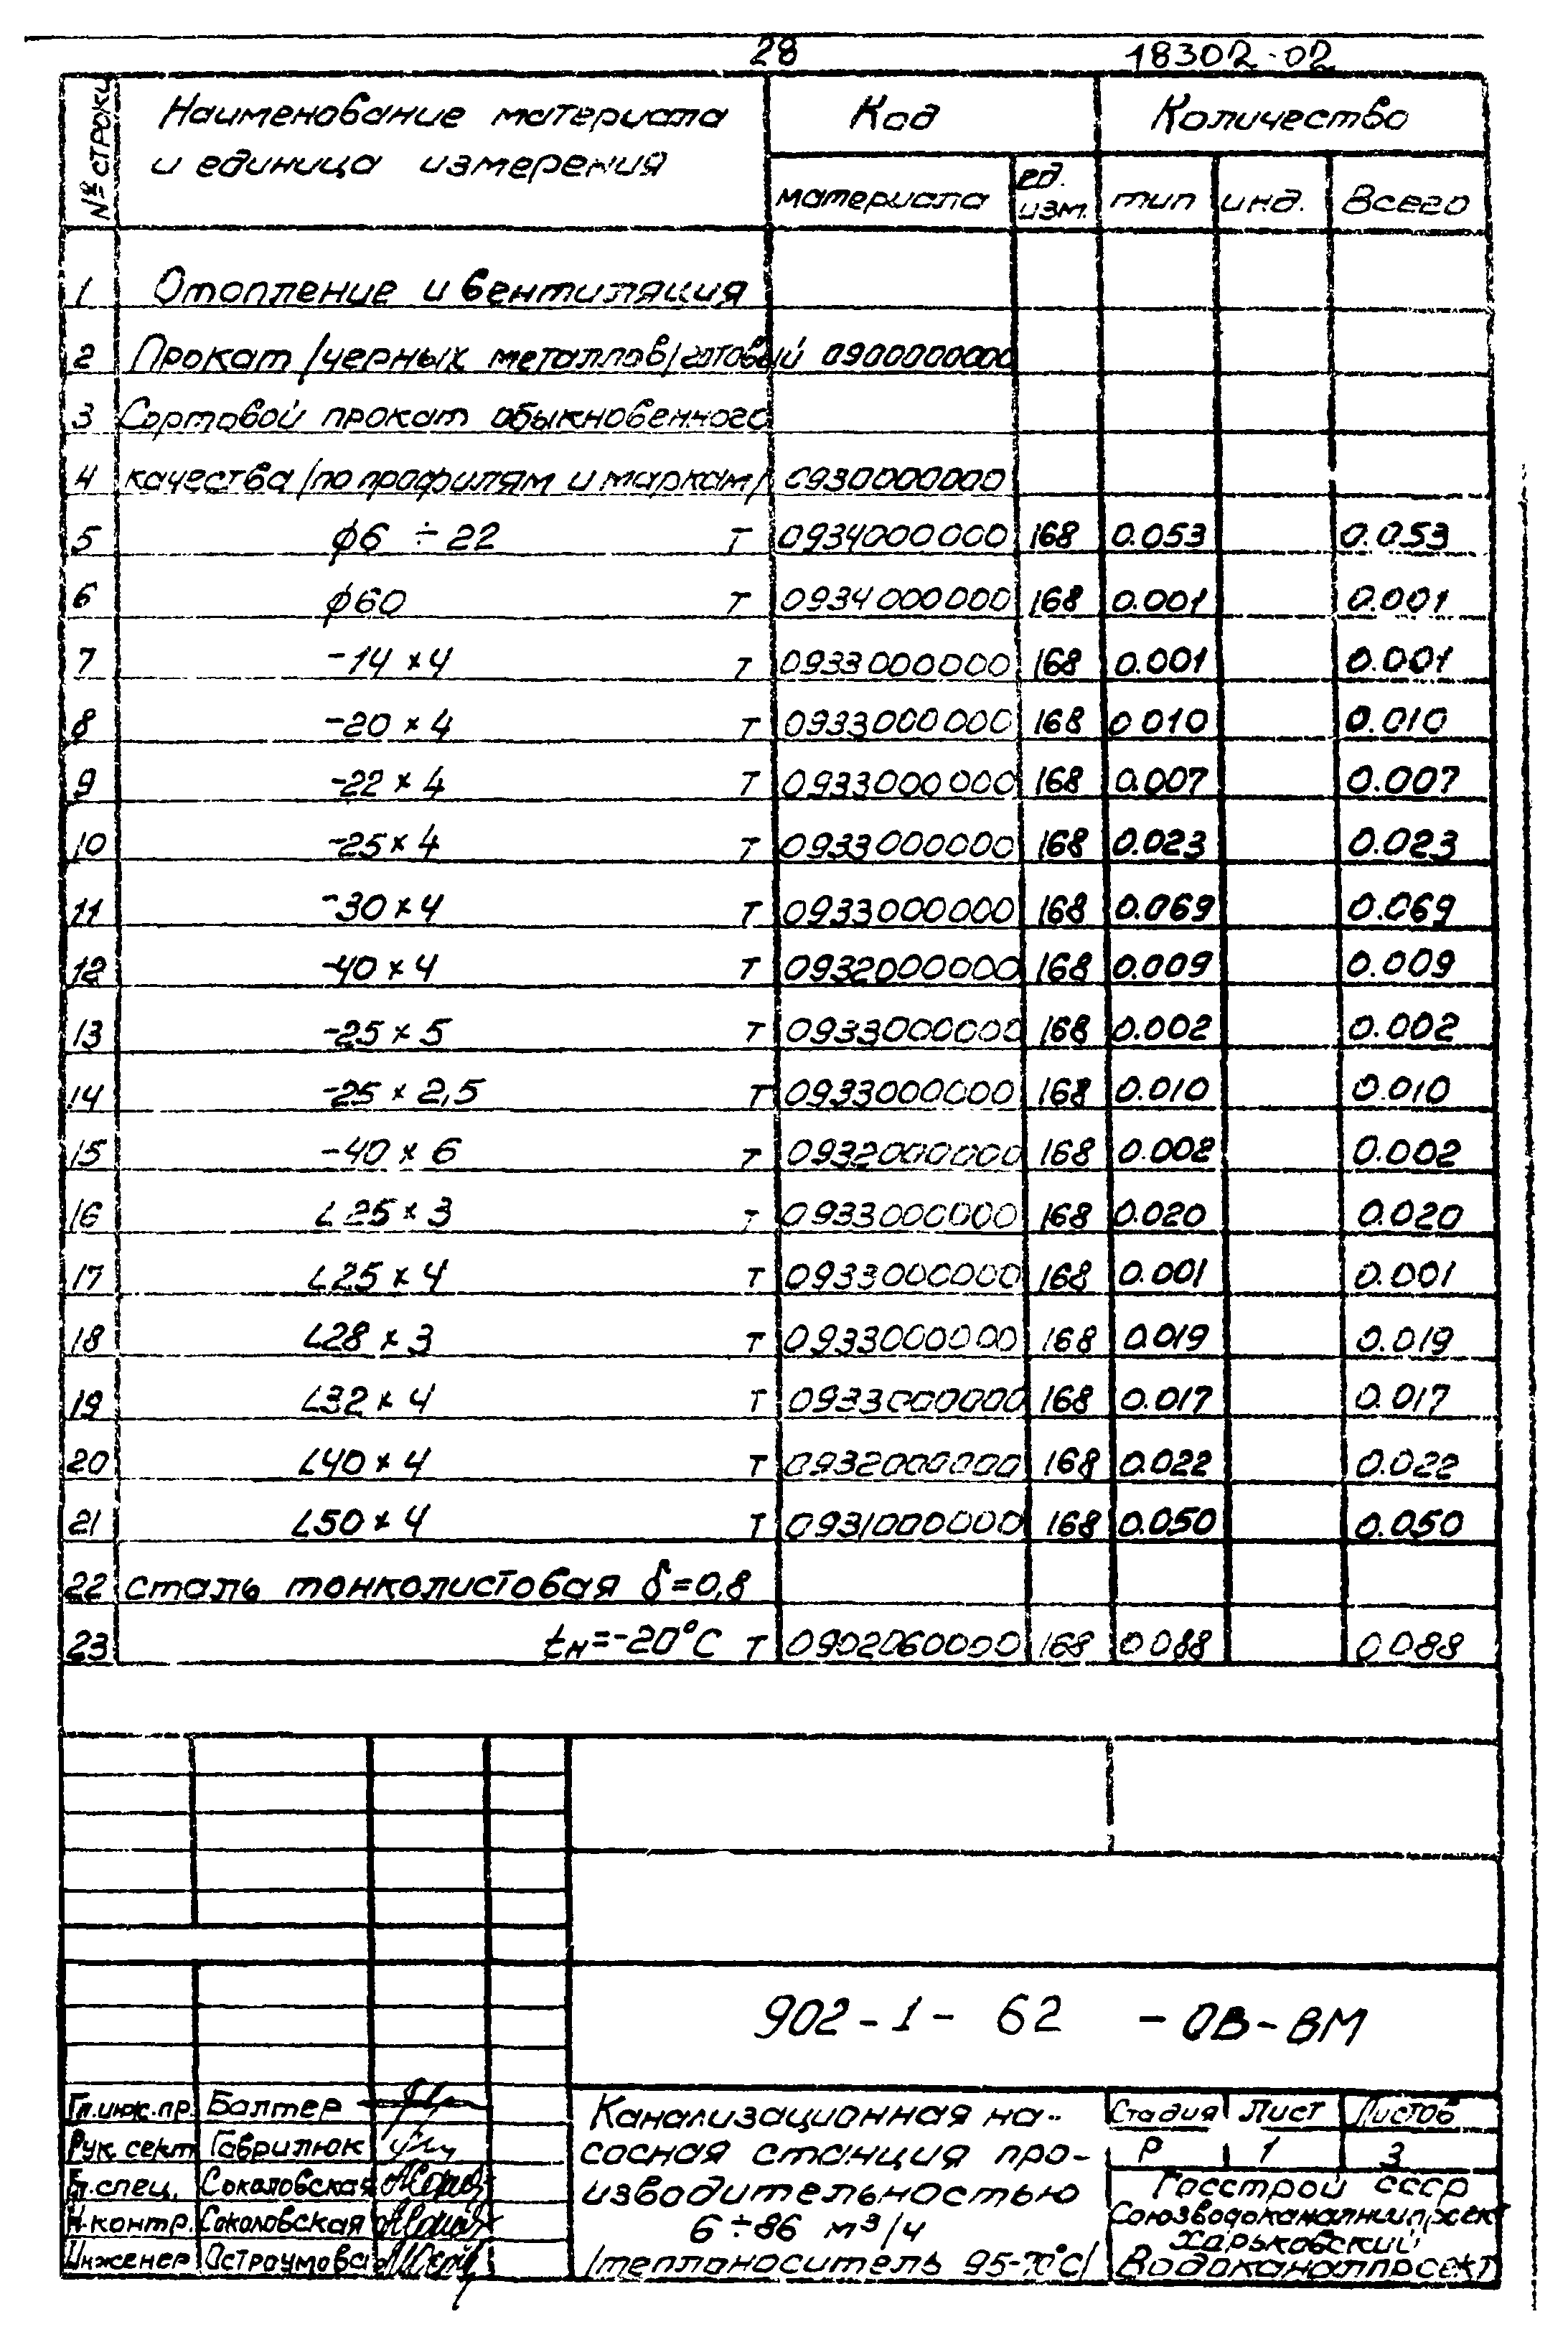 28 18302-02
№ строки Наименование материала и единица измерения Код Количество
материала ед. изм. тип инд. Всего
1 Отопление и вентиляция
2 Прокат /черных металлов/готовый 0900000000
3 Сортовой прокат обыкновенного
4 качества /по профилям и маркам/ 0930000000
5 ϕ6 ÷ 22 Т 0934000000 168 0.053 0.053
6 ϕ60 Т 0934000000 168 0.001 0.001
7 -14 × 4 Т 0933000000 168 0.001 0.001
8 -20 × 4 Т 0933000000 168 0 010 0.010
9 -22 × 4 Т 0933000000 168 0.007 0.007
10 -25 × 4 Т 0933000000 168 0.023 0.023
11 -30 × 4 Т 0933000000 168 0.069 0.069
12 -40 × 4 Т 0932000000 168 0.009 0.009
13 -25 × 5 Т 0933000000 168 0.002 0.002
14 -25 × 2,5 Т 0933000000 168 0.010 0.010
15 -40 × 6 Т 0932000000 168 0.002 0.002
16 ∠25 × 3 Т 0933000000 168 0.020 0.020
17 ∠25 × 4 Т 0933000000 168 0.001 0.001
18 ∠28 × 3 Т 0933000000 168 0.019 0.019
19 ∠32 × 4 Т 0933000000 168 0.017 0.017
20 ∠40 × 4 Т 0932000000 168 0.022 0.022
21 ∠50 × 4 Т 0931000000 168 0.050 0.050
22 сталь тонколистовая δ=0,8
23 tн=-20°С Т 0902060000 168 0 088 0 088
902-1- 62 - ОВ-ВМ
Гл.инж.пр. Балтер
Рук. сект Гаврилюк
Гл.спец. Сокаловская
Н.контр. Соколовская
Инженер Остроумова
Канализационная на-
сосная станция про-
изводительностью
6÷86 м³/ч
/теплоноситель 95-70°С/
Стадия Лист Листов
Р 1 3
Госстрой СССР
Союзводоканалниипроект
Харьковский
Водоканалпроект